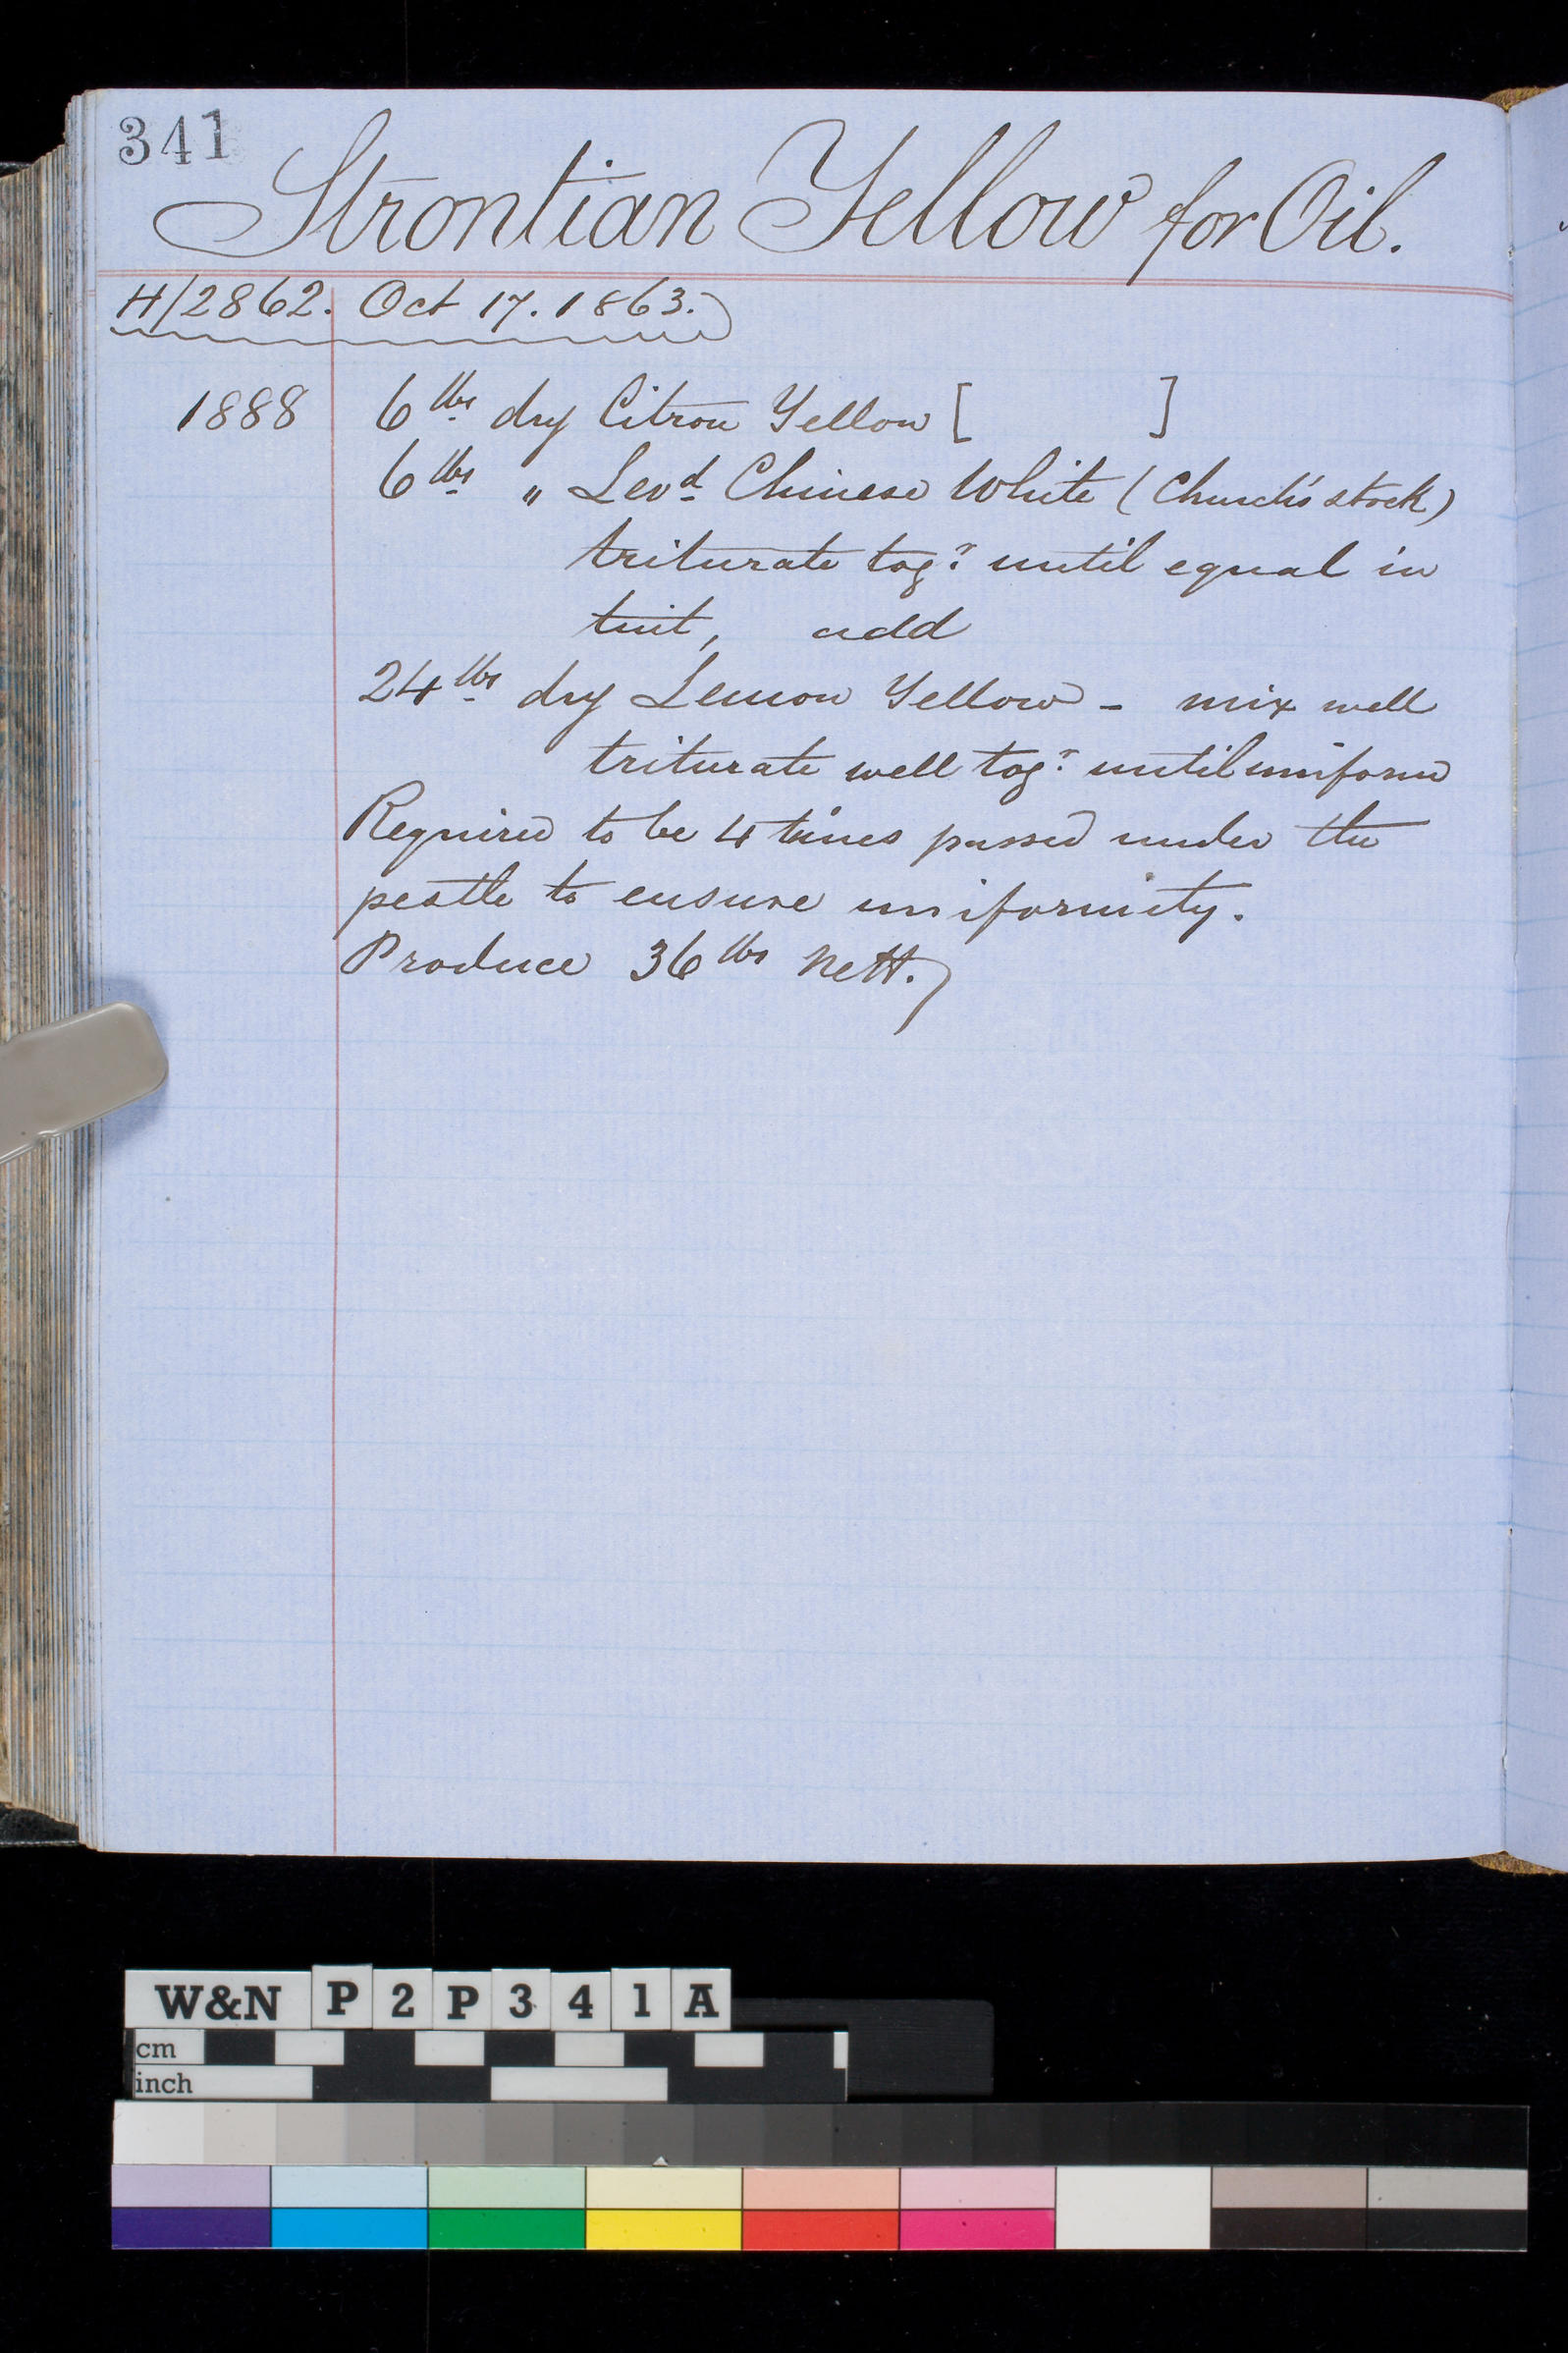 341
Strontian Yellow for Oil.
H/2862. Oct 17. 1863.
1888 6 lbs dry Citron Yellow [ ]
6 lbs " Levd Chinese White (Church's stock)
triturate togr until equal in
tint, add
24 lbs dry Lemon Yellow - mix well
triturate well togr until uniform
Required to be 4 times passed under the
pestle to ensure uniformity.
Produce 36 lbs nett.
W&N P2P341A
cm
inch